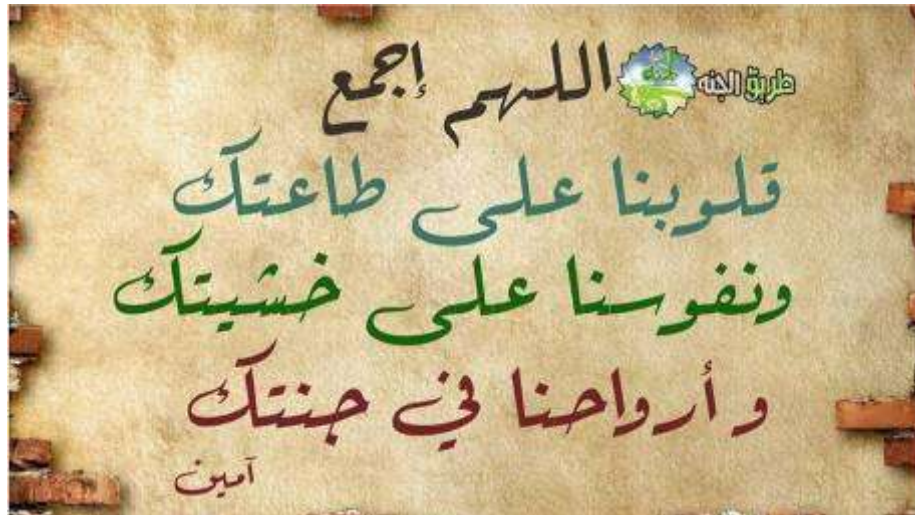 طريق الجنه
اللهم إجمع
قلوبنا على طاعتك
ونفوسنا على خشيتك
و أرواحنا في جنتك
آمين